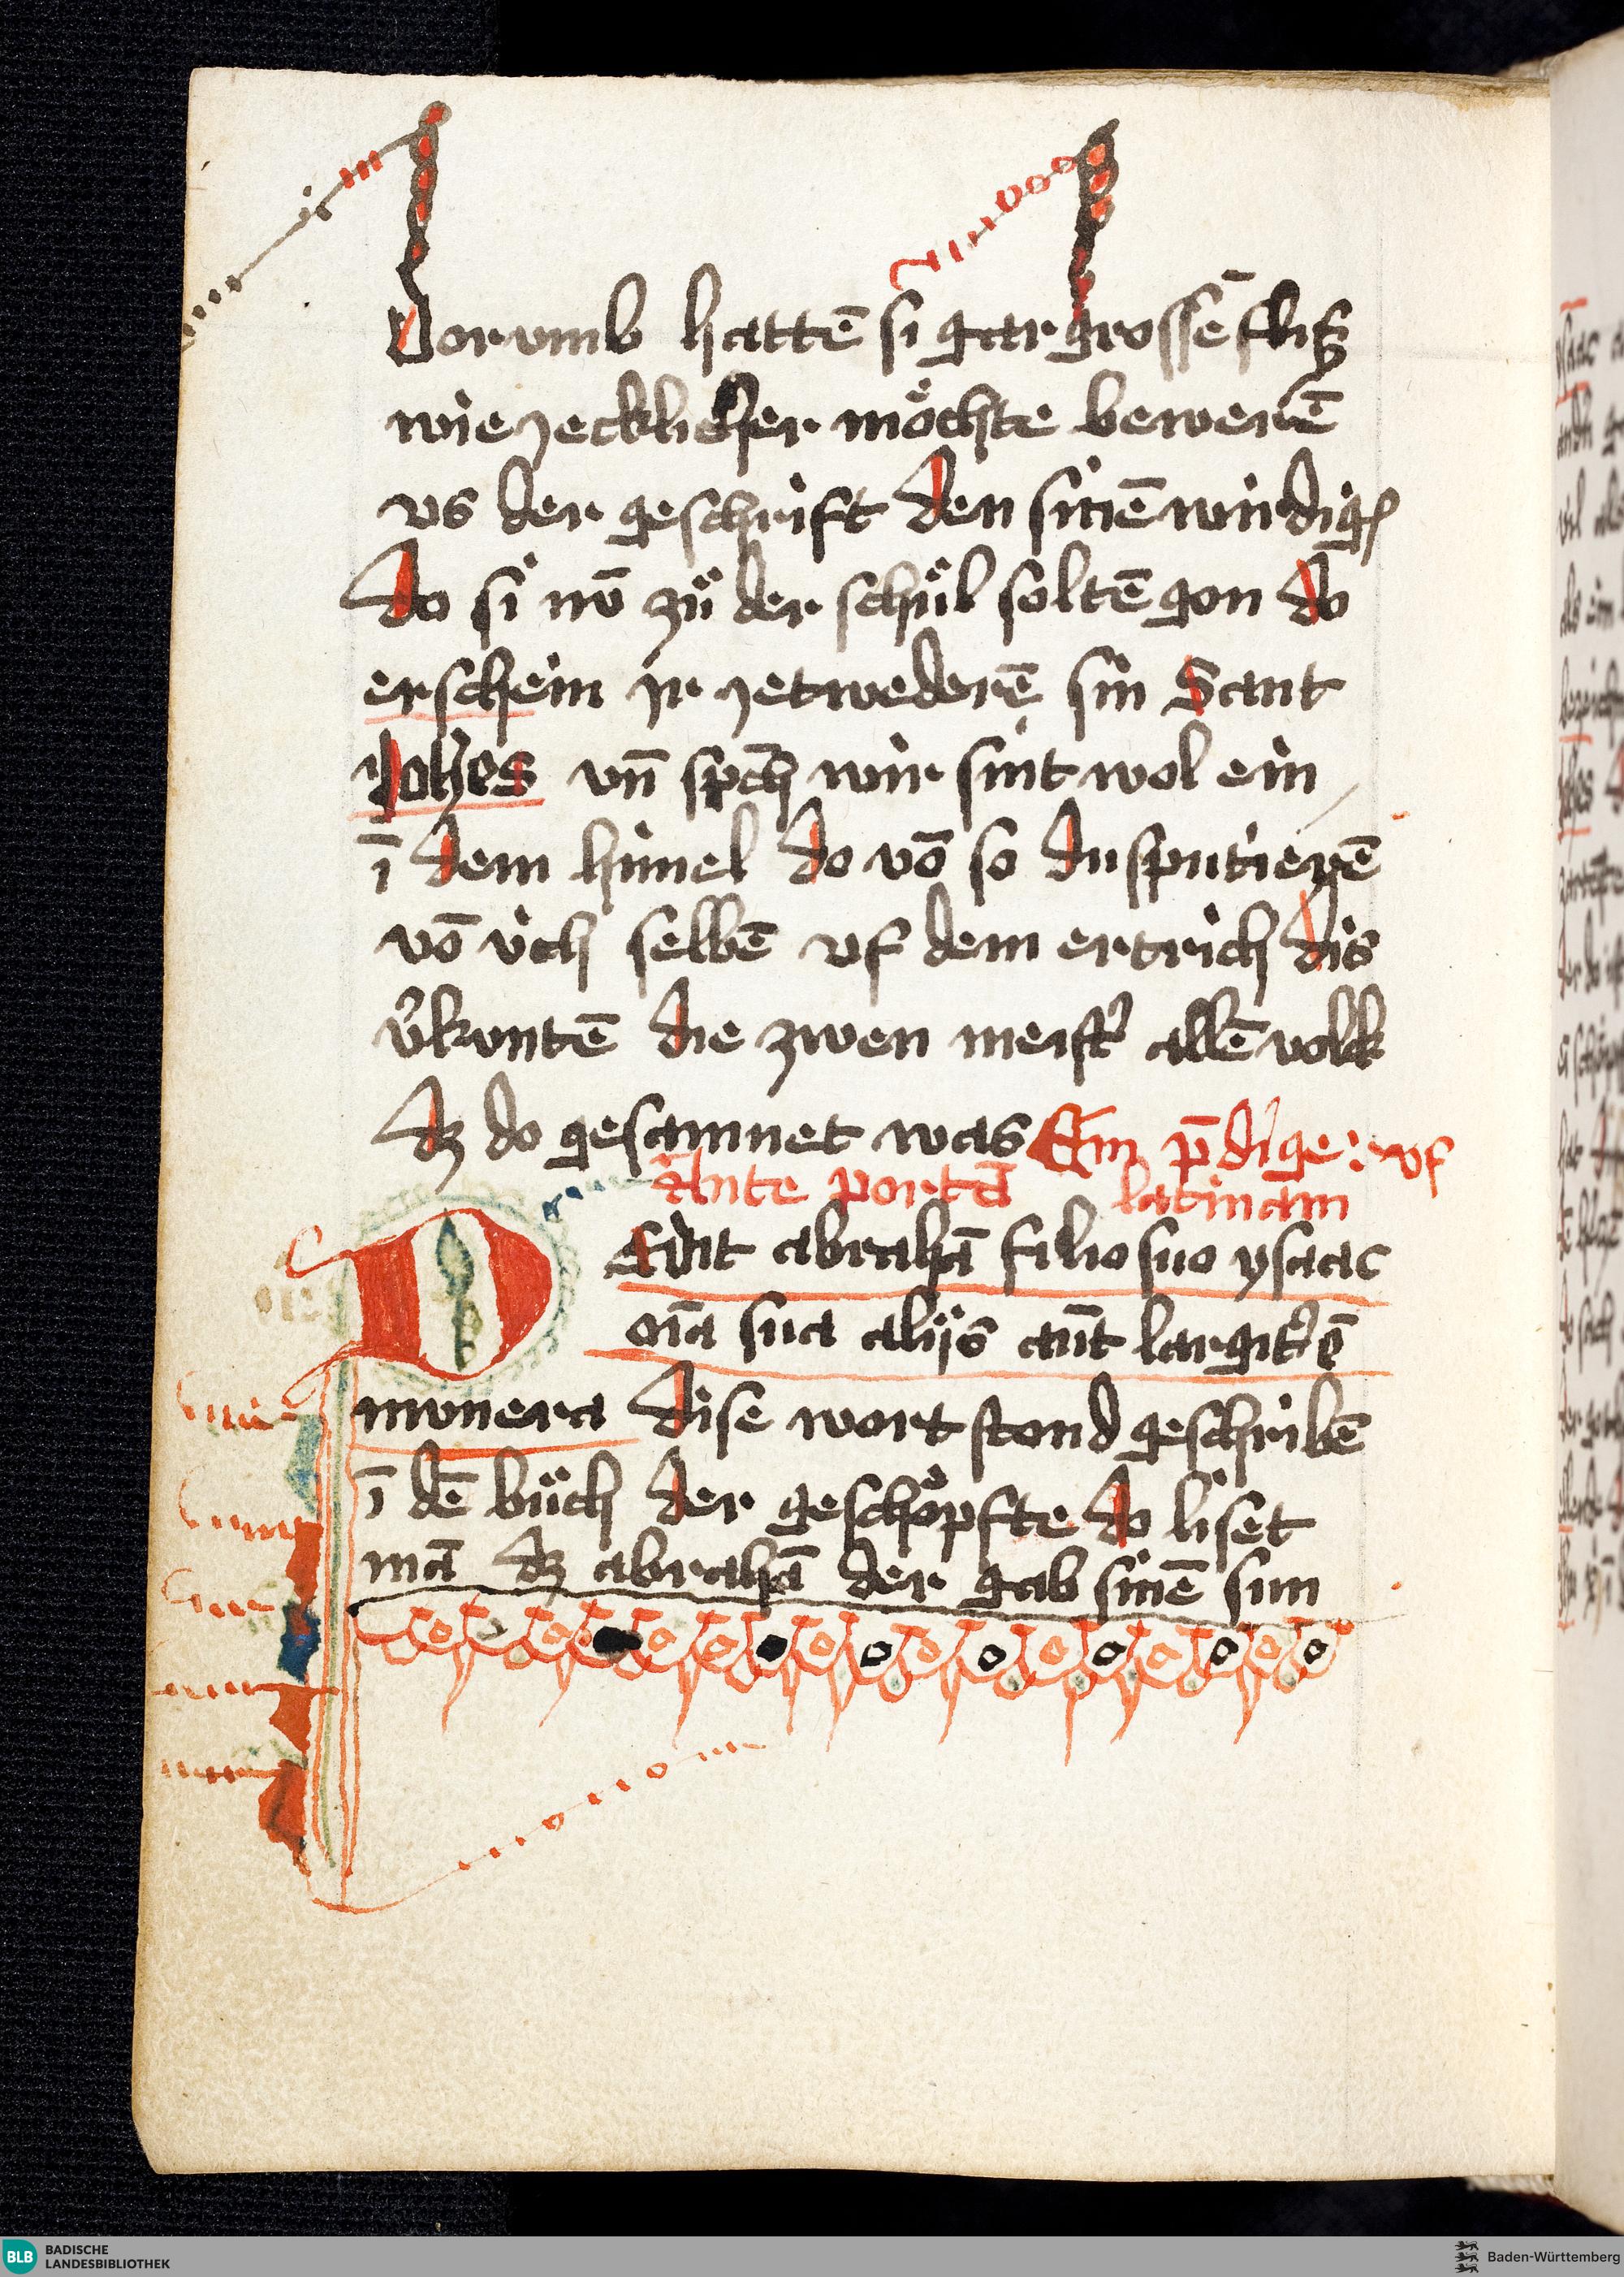 Dorumb hattē si gar grossē flis
wie jecklicher möchte bewerē
us der geschrift den sinē wirdigē
do si nō zů der schůl soltē gon do
erschein jr jetwederē sin Sant
Johes vn̄ spch wir sint wol ein
ī dem himel do vō so dusputierē
vō v́ch selbē uf dem ertrich dis
v̉kuntē die zwen meist̉ allē volk
dz do gesamnet was Ein p̄dige: uf
Ante portā latinam
DEdit abrahā filio suo ysaac
oīa sua alijs aūt largit̉ ē
munera dise wort stond geschribē
ī dē bůch der geschöpfte do liset
mā dz abrahā der gab sinē sun
BLB BADISCHE
LANDESBIBLIOTHEK
Baden-Württemberg